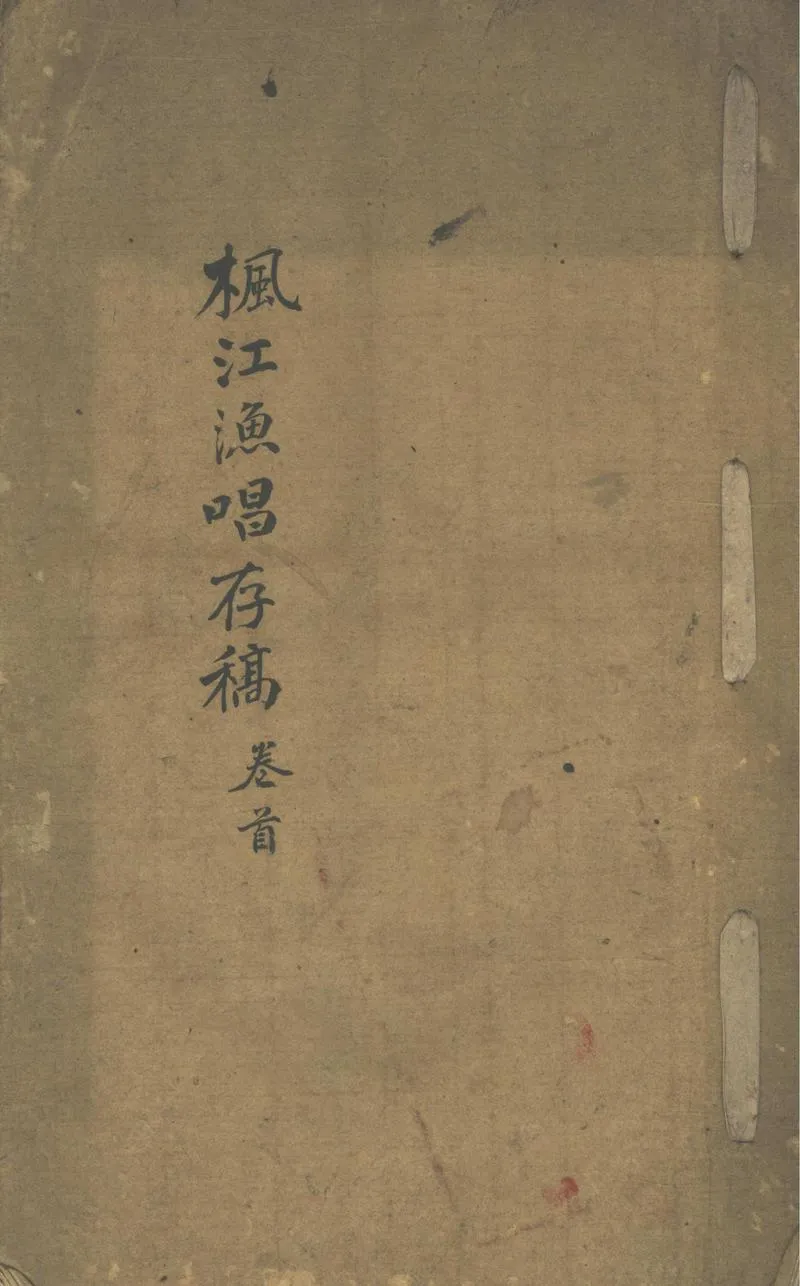 楓江漁唱存稿 卷首